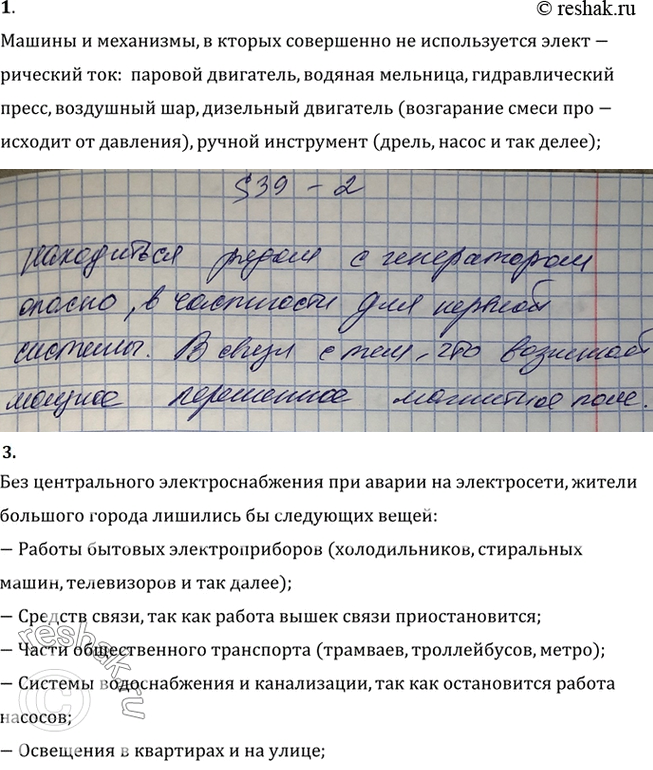 1. © reshak.ru
Машины и механизмы, в кторых совершенно не используется элект −
рический ток: паровой двигатель, водяная мельница, гидравлический
пресс, воздушный шар, дизельный двигатель (возгарание смеси про −
исходит от давления), ручной инструмент (дрель, насос и так делее);
§39 - 2
находиться рядом с генератором
опасно, в частности для нервной
системы. В связи с тем, что возникает
мощное переменное магнитное поле.
3.
Без центрального электроснабжения при аварии на электросети, жители
большого города лишились бы следующих вещей:
− Работы бытовых электроприборов (холодильников, стиральных
машин, телевизоров и так далее);
− Средств связи, так как работа вышек связи приостановится;
− Части общественного транспорта (трамваев, троллейбусов, метро);
− Системы водоснабжения и канализации, так как остановится работа
насосов;
− Освещения в квартирах и на улице;
reshak.ru
©